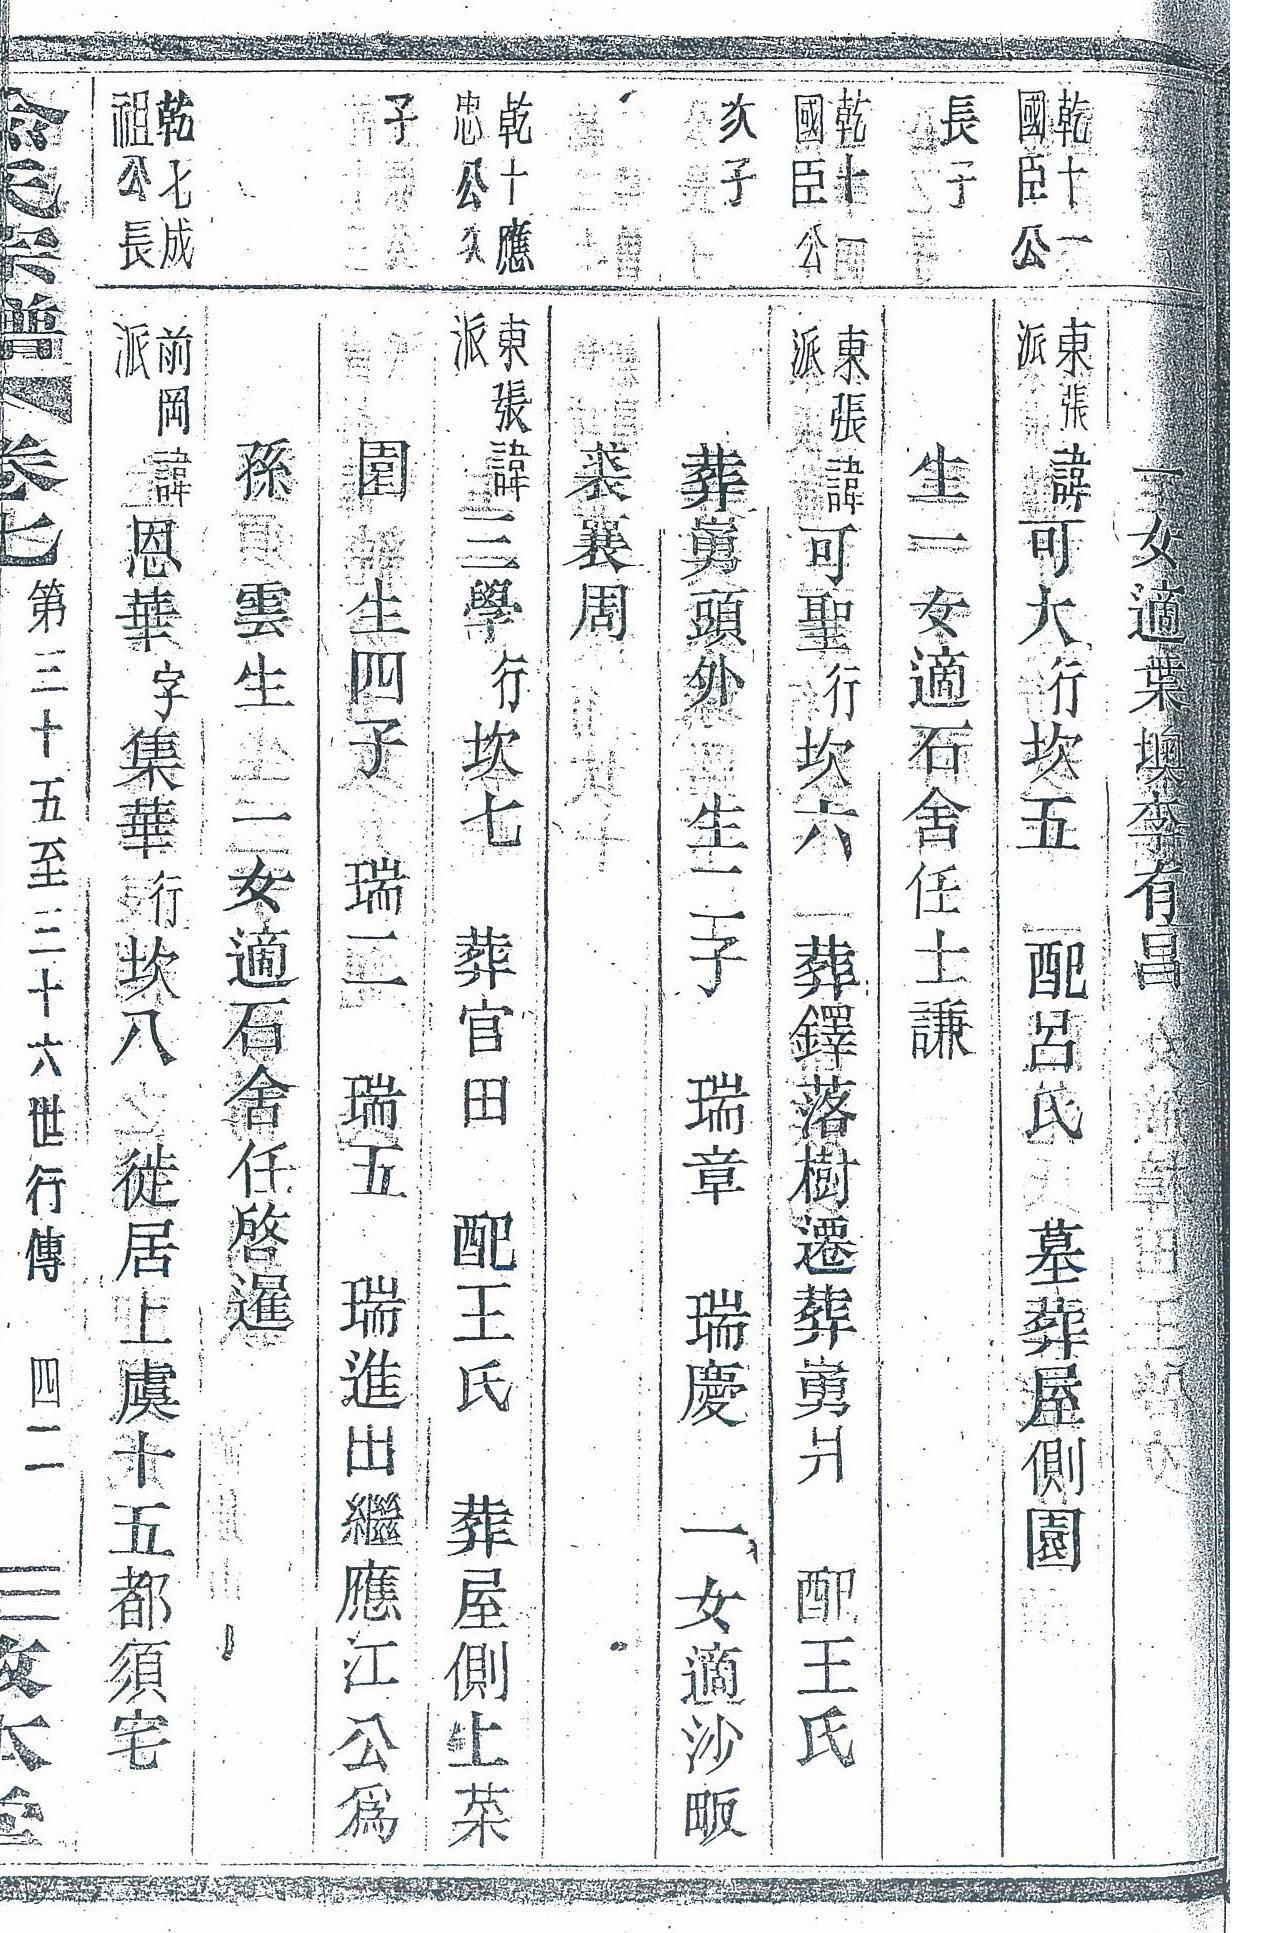 一女適葉墺李有昌
乾十一
國臣公
長子
東張
派
諱可大行坎五 配呂氏 墓葬屋側園
生一女適石舍任士謙
乾十一
國臣公
次子
東張
派
諱可聖行坎六 葬鐸落樹遷葬嵏爿 配王氏
葬嵏頭外 生二子 瑞章 瑞慶 一女適沙畈
裘襄周
乾十應
忠公次
子
東張
派
諱三學行坎七 葬官田 配王氏 葬屋側上菜
園 生四子 瑞二 瑞五 瑞進出繼應江公為
孫 雲生 二女適石舍任啓暹
乾七成
祖公長
前岡
派
諱恩華字集華行坎八 徙居上虞十五都須宅
俞氏宗譜 卷七 第三十五至三十六世行傳 四二 敦本堂